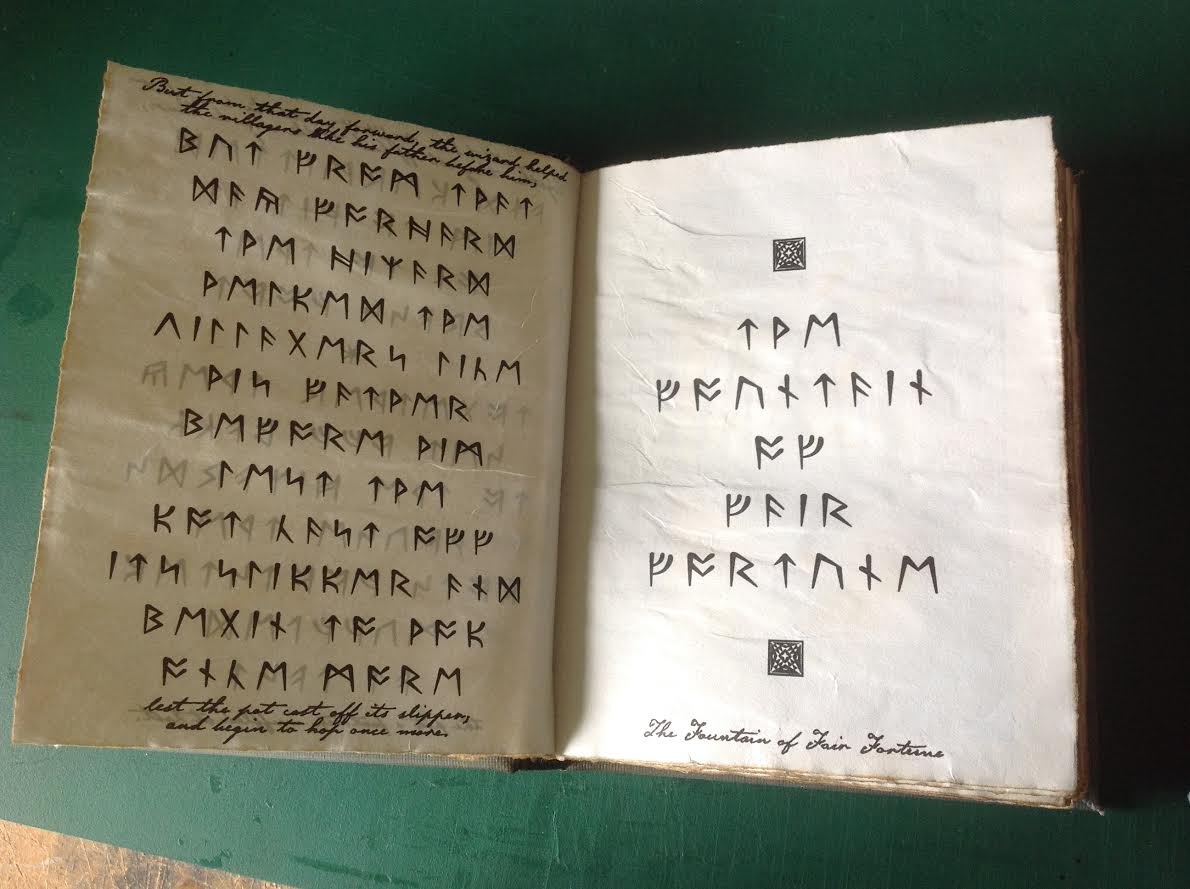 But from that day forward, the wizard helped
the villagers like his father before him,
ᛒᚢᛏ ᚠᚱᚩᛗ ᛏᚦᚨᛏ
ᛞᚨᚤ ᚠᚩᚱᚻᚨᚱᛞ
ᛏᚦᛖ ᚻᛁᛉᚨᚱᛞ
ᚦᛖᛚᛕᛖᛞ ᛏᚦᛖ
ᚢᛁᛚᛚᚨᚷᛖᚱᛋ ᛚᛁᚳᛖ
ᚦᛁᛋ ᚠᚨᛏᚦᛖᚱ
ᛒᛖᚠᚩᚱᛖ ᚦᛁᛗ
ᛚᛖᛋᛏ ᛏᚦᛖ
ᛕᚩᛏ ᚳᚨᛋᛏ ᚩᚠᚠ
ᛁᛏᛋ ᛋᛚᛁᛕᛕᛖᚱ ᚨᚾᛞ
ᛒᛖᚷᛁᚾ ᛏᚩ ᚦᚩᛕ
ᚩᚾᚳᛖ ᛗᚩᚱᛖ
lest the pot cast off its slipper,
and begin to hop once more.
ᛏᚦᛖ
ᚠᚩᚢᚾᛏᚨᛁᚾ
ᚩᚠ
ᚠᚨᛁᚱ
ᚠᚩᚱᛏᚢᚾᛖ
The Fountain of Fair Fortune